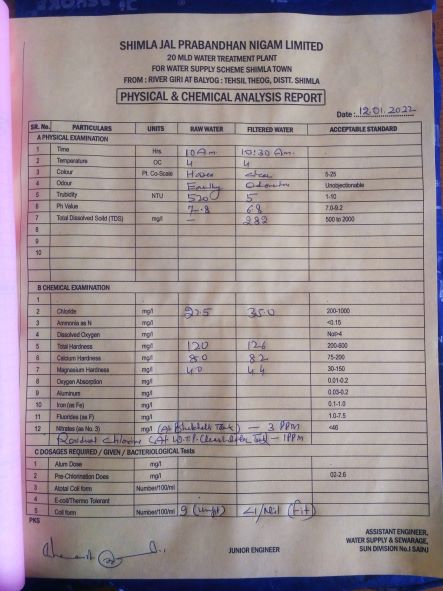 SHIMLA JAL PRABANDHAN NIGAM LIMITED
20 MLD WATER TREATMENT PLANT
FOR WATER SUPPLY SCHEME SHIMLA TOWN
FROM : RIVER GIRI AT BALYOG : TEHSIL THEOG, DISTT. SHIMLA
PHYSICAL & CHEMICAL ANALYSIS REPORT
Date : 12.01.2022
SR. No. PARTICULARS UNITS RAW WATER FILTERED WATER ACCEPTABLE STANDARD
A PHYSICAL EXAMINATION
1 Time Hrs 10 Am 10:30 Am.
2 Temperature OC 4 4
3 Colour Pt. Co-Scale clear 5-25
4 Odour Unobjectionable
5 Trubidity NTU 520 5 1-10
6 Ph Value 7.8 6.8 7.0-9.2
7 Total Dissolved Soild (TDS) mg/l – 282 500 to 2000
8
9
10
B CHEMICAL EXAMINATION
1
2 Chloride mg/l 35.0 200-1000
3 Ammonia as N mg/l <0.15
4 Dissolved Oxygen mg/l Not>4
5 Total Hardness mg/l 120 126 200-600
6 Calcium Hardness mg/l 80 82 75-200
7 Magnesium Hardness mg/l 40 44 30-150
8 Oxygen Absorption mg/l 0.01-0.2
9 Aluminum mg/l 0.03-0.2
10 Iron (as Fe) mg/l 0.1-1.0
11 Fluorides (as F) mg/l 1.0-7.5
12 Nitrates (as No. 3) mg/l (At Tank) – 3 PPM <46
Residual Chlorine (At W.T.P. Clear Water Tank – 1PPM
C DOSAGES REQUIRED / GIVEN / BACTERIOLOGICAL Tests
1 Alum Dose mg/l
2 Pre-Chlorination Does mg/l 02-2.6
3 Atotal Coli form Number/100/ml
4 E-coli/Thermo Tolerant
5 Coli form Number/100/ml 9 (unfit) <1/Nil (fit)
PKS
JUNIOR ENGINEER
ASSISTANT ENGINEER,
WATER SUPPLY & SEWARAGE,
SUN DIVISION No.I SAINJ